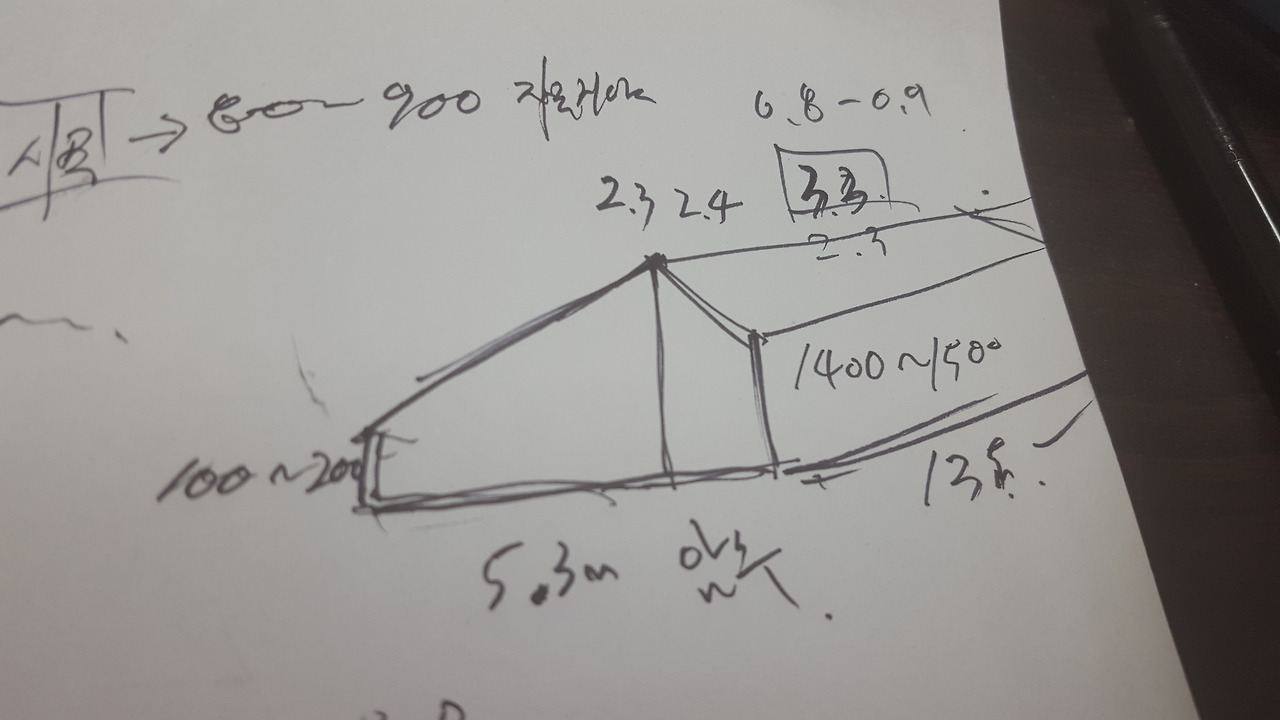 시골 → 800~900
0.8-0.9
2.3 2.4 3.3
2.3
1400~1500
100~200
13
5.3m